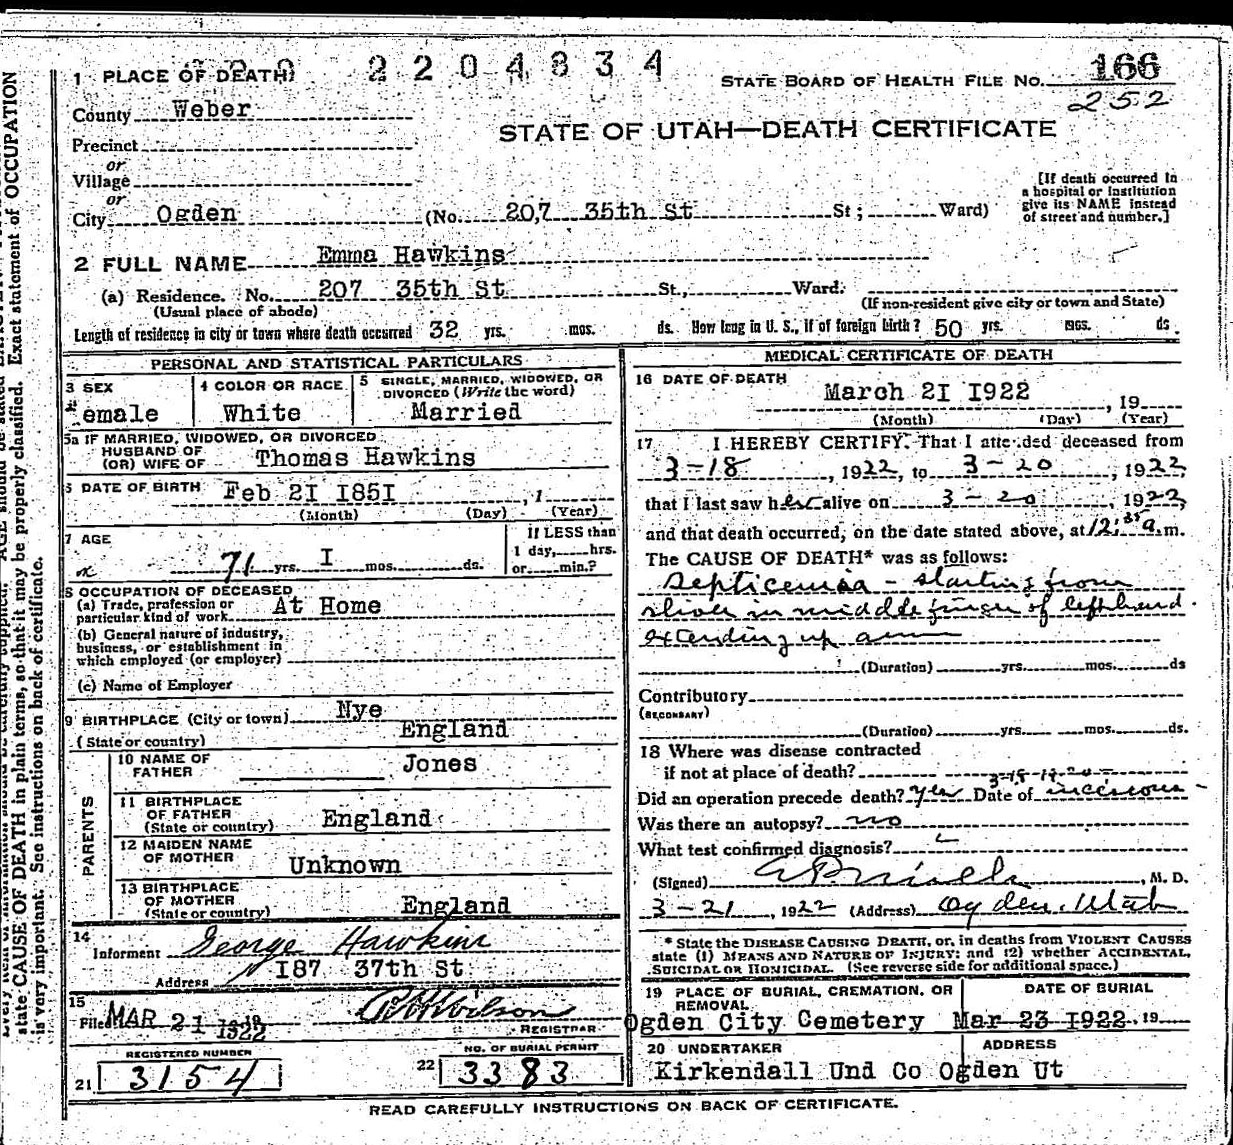 2204834
1 PLACE OF DEATH
STATE BOARD OF HEALTH FILE No. 166
252
County Weber
STATE OF UTAH—DEATH CERTIFICATE
Precinct
or
Village
or
City Ogden (No. 207 35th St St; Ward)
[If death occurred in
a hospital or institution
give its NAME instead
of street and number.]
2 FULL NAME Emma Hawkins
(a) Residence. No. 207 35th St St., Ward.
(Usual place of abode) (If non-resident give city or town and State)
Length of residence in city or town where death occurred 32 yrs. mos. ds. How long in U. S., if of foreign birth? 50 yrs. mos. ds.
PERSONAL AND STATISTICAL PARTICULARS
3 SEX
emale
4 COLOR OR RACE
White
5 SINGLE, MARRIED, WIDOWED, OR
DIVORCED (Write the word)
Married
5a IF MARRIED, WIDOWED, OR DIVORCED
HUSBAND OF
(OR) WIFE OF Thomas Hawkins
DATE OF BIRTH Feb 2I I85I , 1
(Month) (Day) (Year)
7 AGE
71 yrs. I mos. ds.
If LESS than
1 day, hrs.
or min.?
8 OCCUPATION OF DECEASED
(a) Trade, profession or
particular kind of work At Home
(b) General nature of industry,
business, or establishment in
which employed (or employer)
(c) Name of Employer
9 BIRTHPLACE (City or town) Nye
(State or country) England
PARENTS
10 NAME OF
FATHER Jones
11 BIRTHPLACE
OF FATHER
(State or country) England
12 MAIDEN NAME
OF MOTHER Unknown
13 BIRTHPLACE
OF MOTHER
(State or country) England
14
Informent George Hawkins
Address I87 37th St
15
Filed MAR 21 1922
REGISTRAR
REGISTERED NUMBER
21 3154
NO. OF BURIAL PERMIT
22 3383
MEDICAL CERTIFICATE OF DEATH
16 DATE OF DEATH
March 2I I922 , 19
(Month) (Day) (Year)
17 I HEREBY CERTIFY, That I attended deceased from
3-18 , 1922, to 3-20 , 1922,
that I last saw her alive on 3-20 , 1922,
and that death occurred, on the date stated above, at 12:35 a.m.
The CAUSE OF DEATH* was as follows:
Septicemia - starting from
sliver in middle finger of left hand.
extending up arm
(Duration) yrs. mos. ds
Contributory
(SECONDARY)
(Duration) yrs. mos. ds.
18 Where was disease contracted
if not at place of death?
3-18-19-20-
Did an operation precede death? Yes Date of incisions-
Was there an autopsy? no
What test confirmed diagnosis?
(Signed) , M. D.
3-21 , 1922 (Address) Ogden, Utah
* State the DISEASE CAUSING DEATH, or, in deaths from VIOLENT CAUSES
state (1) MEANS AND NATURE OF INJURY; and (2) whether ACCIDENTAL,
SUICIDAL OR HOMICIDAL. (See reverse side for additional space.)
19 PLACE OF BURIAL, CREMATION, OR
REMOVAL
Ogden City Cemetery
DATE OF BURIAL
Mar 23 I922 , 19
20 UNDERTAKER ADDRESS
Kirkendall Und Co Ogden Ut
READ CAREFULLY INSTRUCTIONS ON BACK OF CERTIFICATE.
state CAUSE OF DEATH in plain terms, so that it may be properly classified. Exact statement of OCCUPATION
is very important. See instructions on back of certificate.